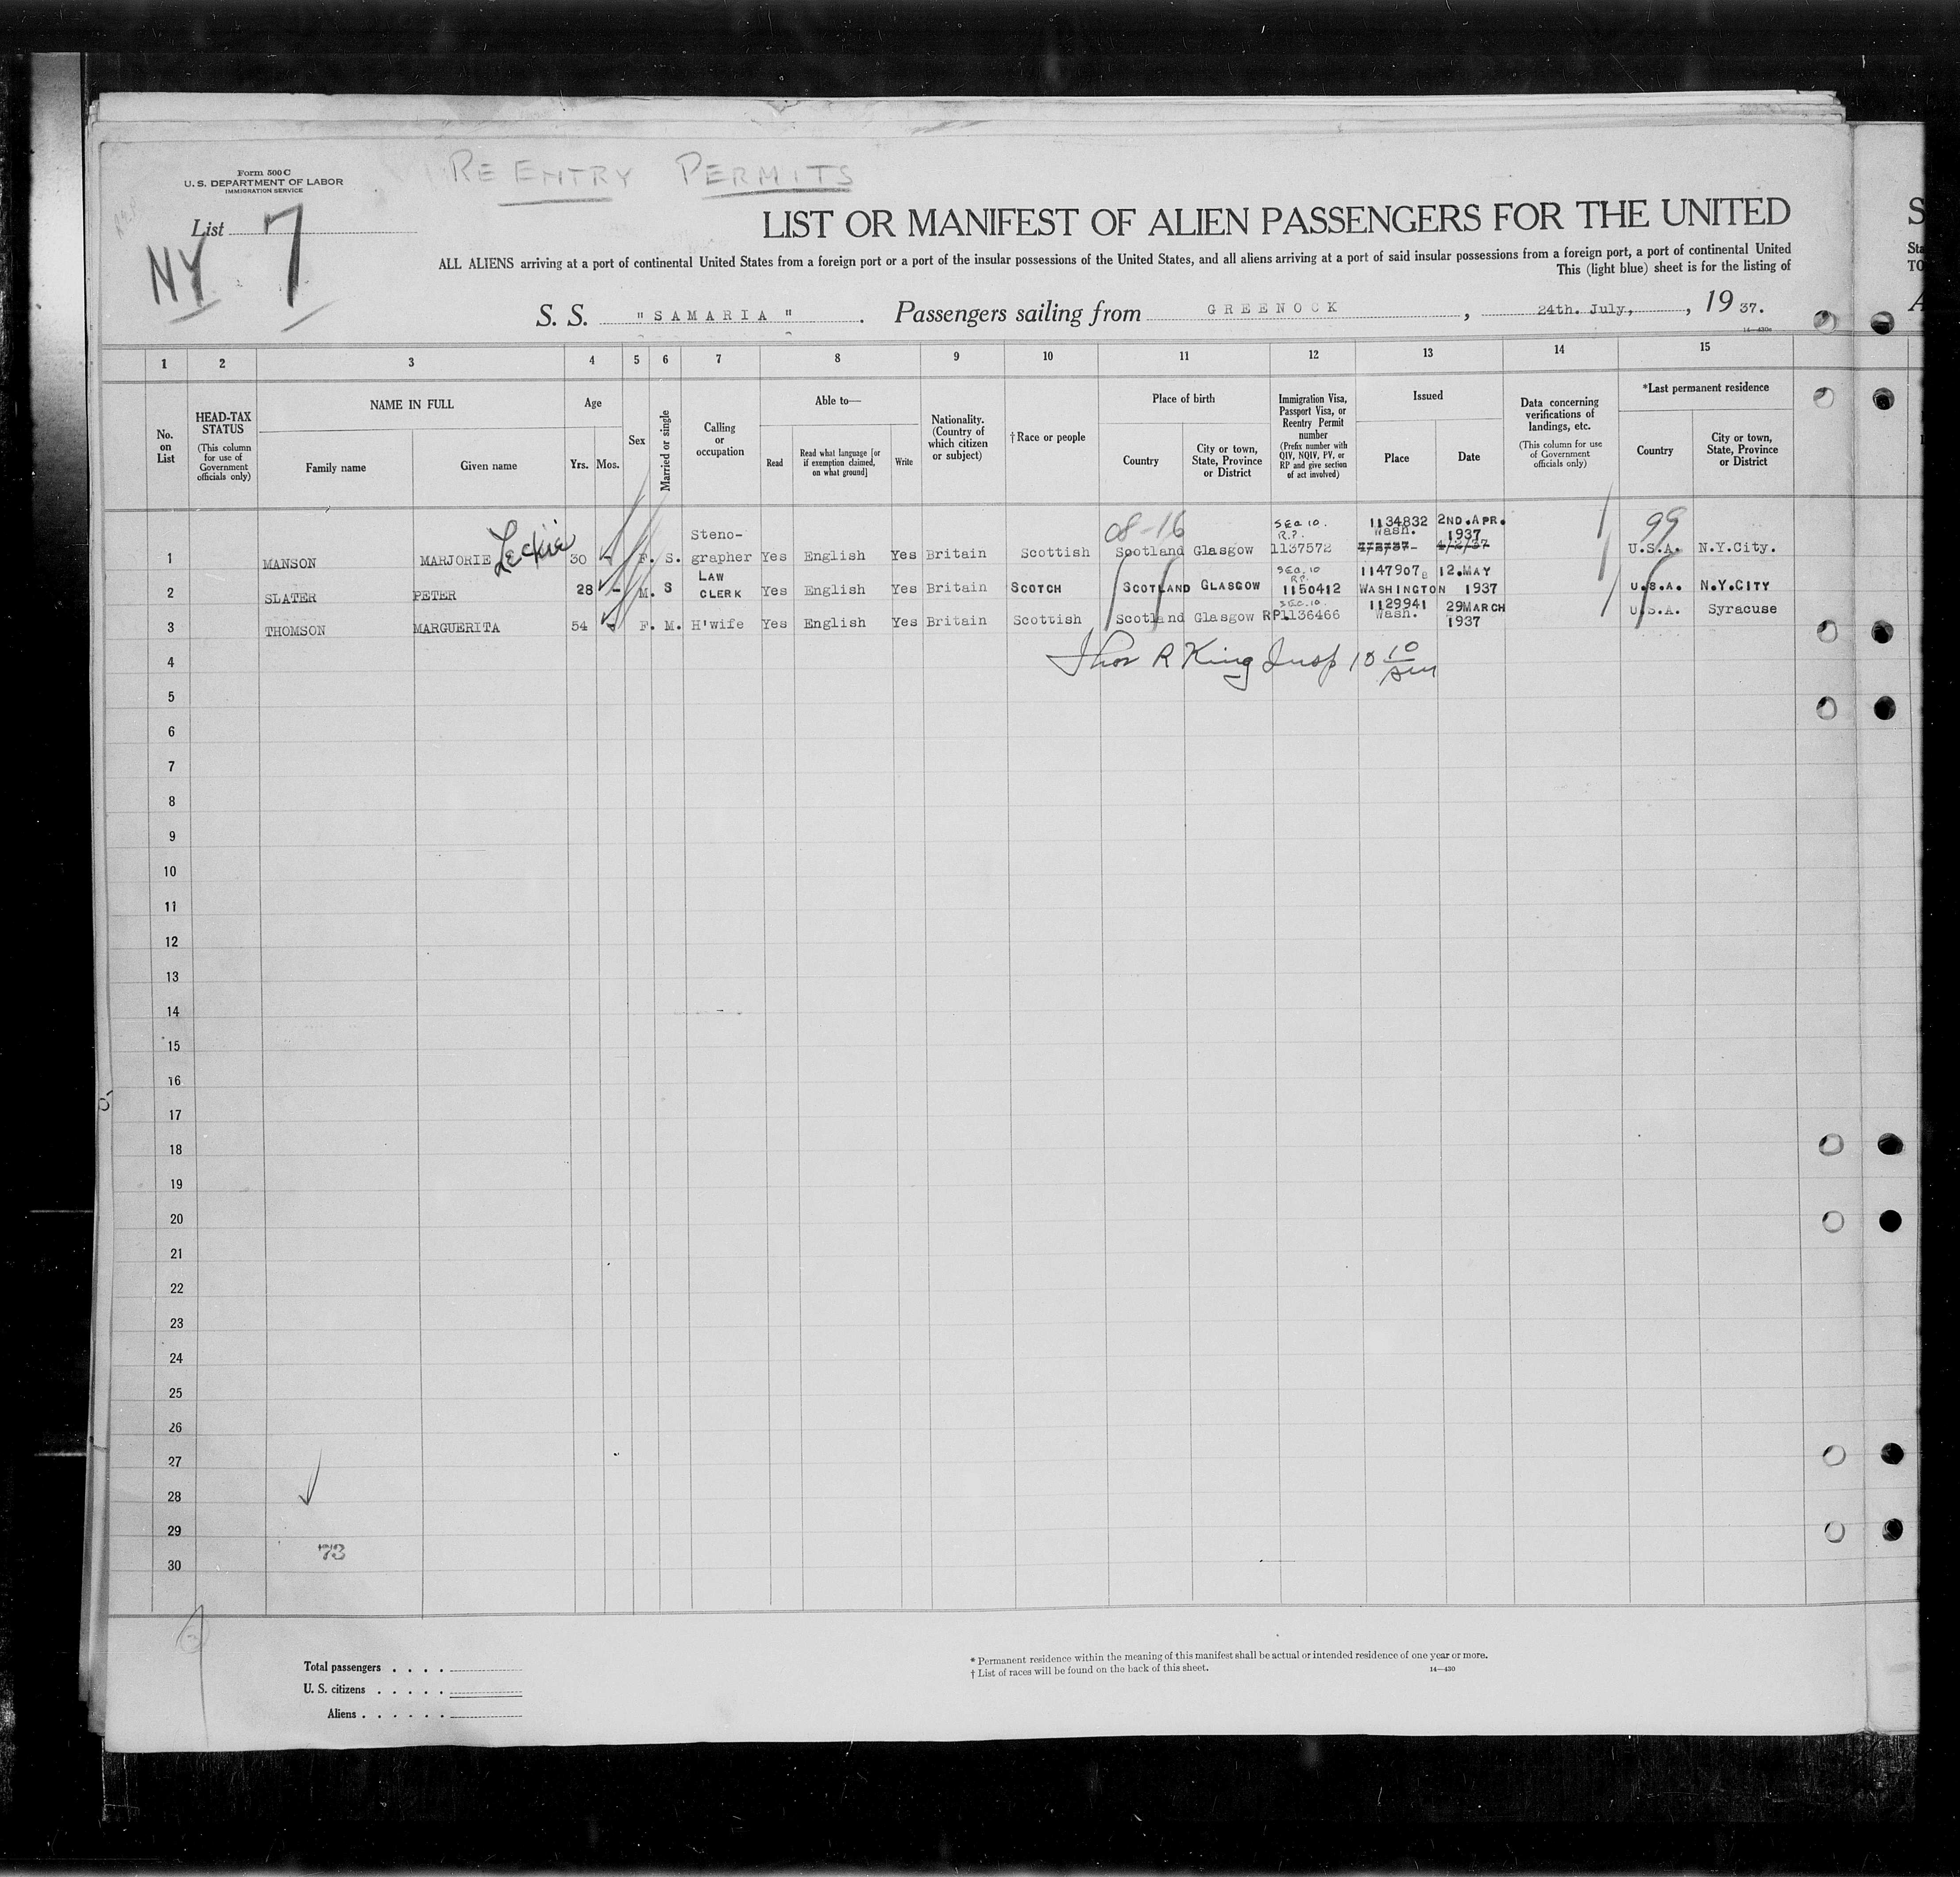 RE ENTRY PERMITS
Form 500 C
U. S. DEPARTMENT OF LABOR
IMMIGRATION SERVICE
List 7
NY
LIST OR MANIFEST OF ALIEN PASSENGERS FOR THE UNITED
S
ALL ALIENS arriving at a port of continental United States from a foreign port or a port of the insular possessions of the United States, and all aliens arriving at a port of said insular possessions from a foreign port, a port of continental United
Sta
This (light blue) sheet is for the listing of
TO
S. S. "SAMARIA". Passengers sailing from GREENOCK, 24th. July, , 19 37.
A
1 2 3 4 5 6 7 8 9 10 11 12 13 14 15
No. on List
HEAD-TAX STATUS
(This column for use of Government officials only)
NAME IN FULL
Family name
Given name
Age
Yrs. Mos.
Sex
Married or single
Calling or occupation
Able to—
Read
Read what language [or if exemption claimed, on what ground]
Write
Nationality. (Country of which citizen or subject)
†Race or people
Place of birth
Country
City or town, State, Province or District
Immigration Visa, Passport Visa, or Reentry Permit number
(Prefix number with QIV, NQIV, PV, or RP and give section of act involved)
Issued
Place
Date
Data concerning verifications of landings, etc.
(This column for use of Government officials only)
*Last permanent residence
Country
City or town, State, Province or District
08-16
99
1 MANSON MARJORIE Leckie 30 - F. S. Steno-grapher Yes English Yes Britain Scottish Scotland Glasgow SEC 10. R.P. 1137572 1134832 Wash. 4/2/37 2ND.APR. 1937 4/2/37 U.S.A. N.Y.City.
2 SLATER PETER 28 - M. S LAW CLERK Yes English Yes Britain SCOTCH SCOTLAND GLASGOW SEC. 10 RP. 1150412 1147907 WASHINGTON 12.MAY 1937 U.S.A. N.Y.CITY
3 THOMSON MARGUERITA 54 - F. M. H'wife Yes English Yes Britain Scottish Scotland Glasgow SEC. 10. RP1136466 1129941 Wash. 29MARCH 1937 U.S.A. Syracuse
4 Thos R King Insp 10 10 am
5
6
7
8
9
10
11
12
13
14
15
16
17
18
19
20
21
22
23
24
25
26
27
28
29
73
30
Total passengers . . . .
U. S. citizens . . . . .
Aliens . . . . . .
* Permanent residence within the meaning of this manifest shall be actual or intended residence of one year or more.
† List of races will be found on the back of this sheet.
14—430